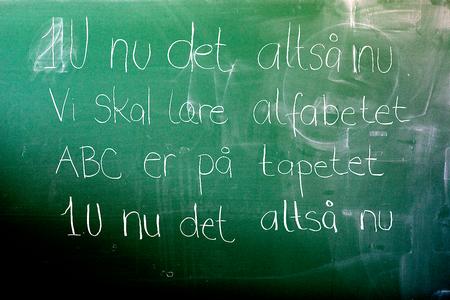 1U nu det altså nu
Vi skal lære alfabetet
ABC er på tapetet
1U nu det altså nu